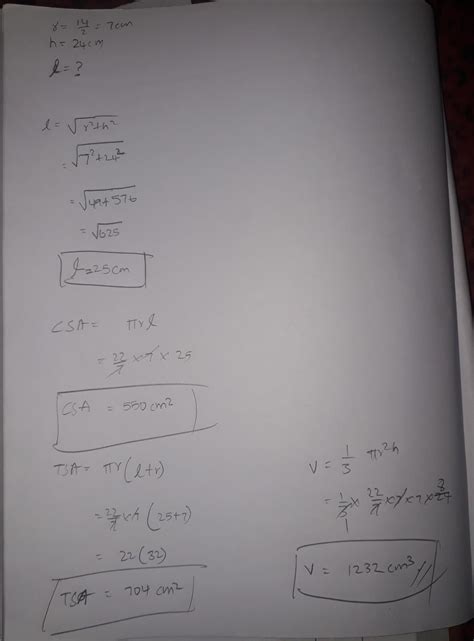 r = 14/2 = 7cm
h = 24cm
l = ?
l = √r²+h²
= √7²+24²
= √49+576
= √625
l = 25cm
CSA = πrl
= 22/7 × 7 × 25
CSA = 550 cm²
TSA = πr(l+r)
= 22/7 × 7 (25+7)
= 22(32)
TSA = 704 cm²
V = 1/3 πr²h
= 1/3 × 22/7 × 7 × 7 × 24 8
1
V = 1232 cm³//